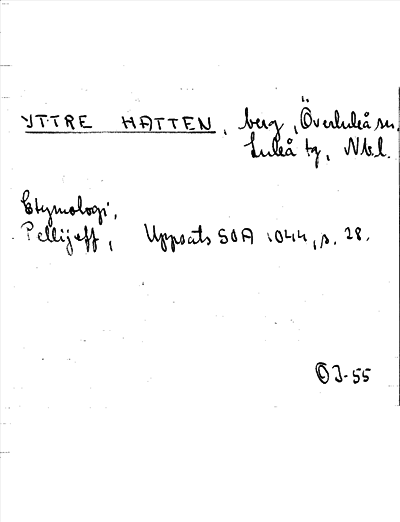 YTTRE HATTEN, berg, Överluleå sn,
Luleå tg, Nb.l.
Etymologi,
Pellijeff, Uppsats SOA 1044, s. 28.
OJ-55